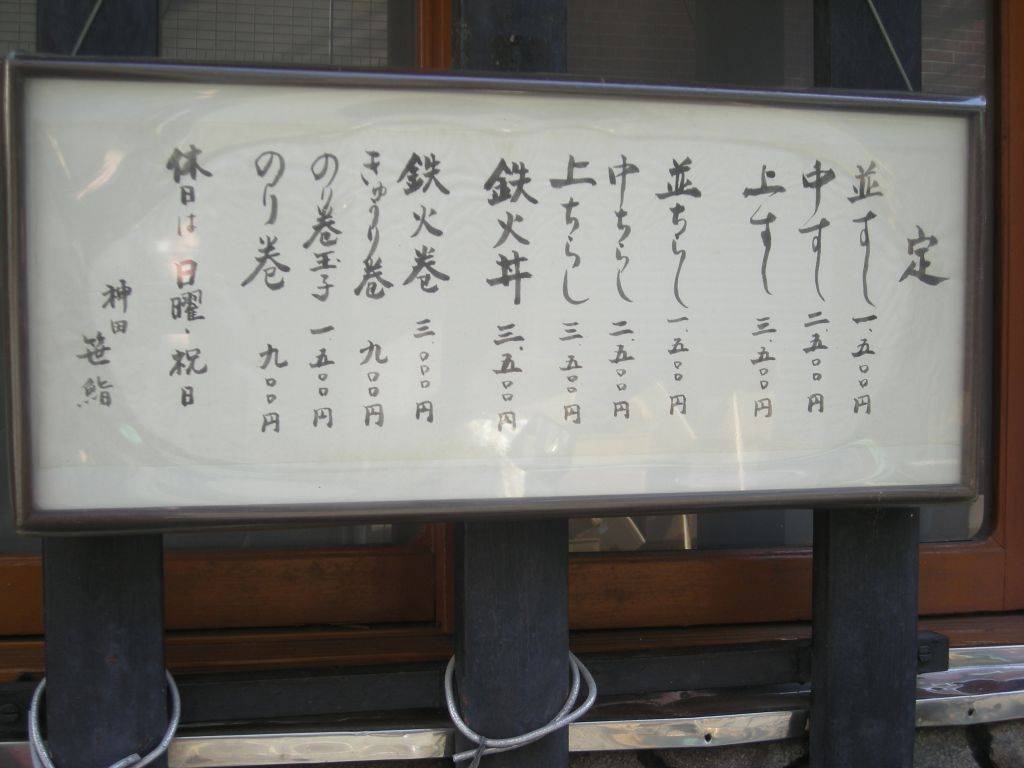 定
並すし 一、五〇〇円
中すし 二、五〇〇円
上すし 三、五〇〇円
並ちらし 一、五〇〇円
中ちらし 二、五〇〇円
上ちらし 三、五〇〇円
鉄火丼 三、五〇〇円
鉄火巻 三、〇〇〇円
きゅうり巻 九〇〇円
のり巻玉子 一、五〇〇円
のり巻 九〇〇円
休日は日曜、祝日
神田
笹鮨